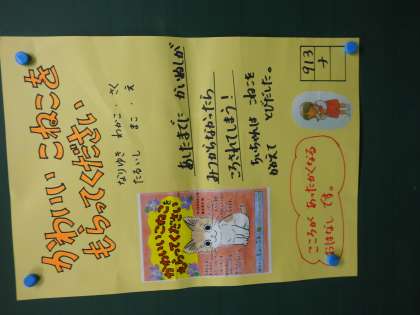 かわいい こねこを
もらってください
なりゆき わかこ・さく
たるいし まこ・え
あしたまでに かいぬしが
みつからなかったら
ころされてしまう！
ちいちゃんは こねこを
かかえて
とびだした。
913
ナ
こころが あったかくなる
おはなし です。
かわいいこねこを
もらってください